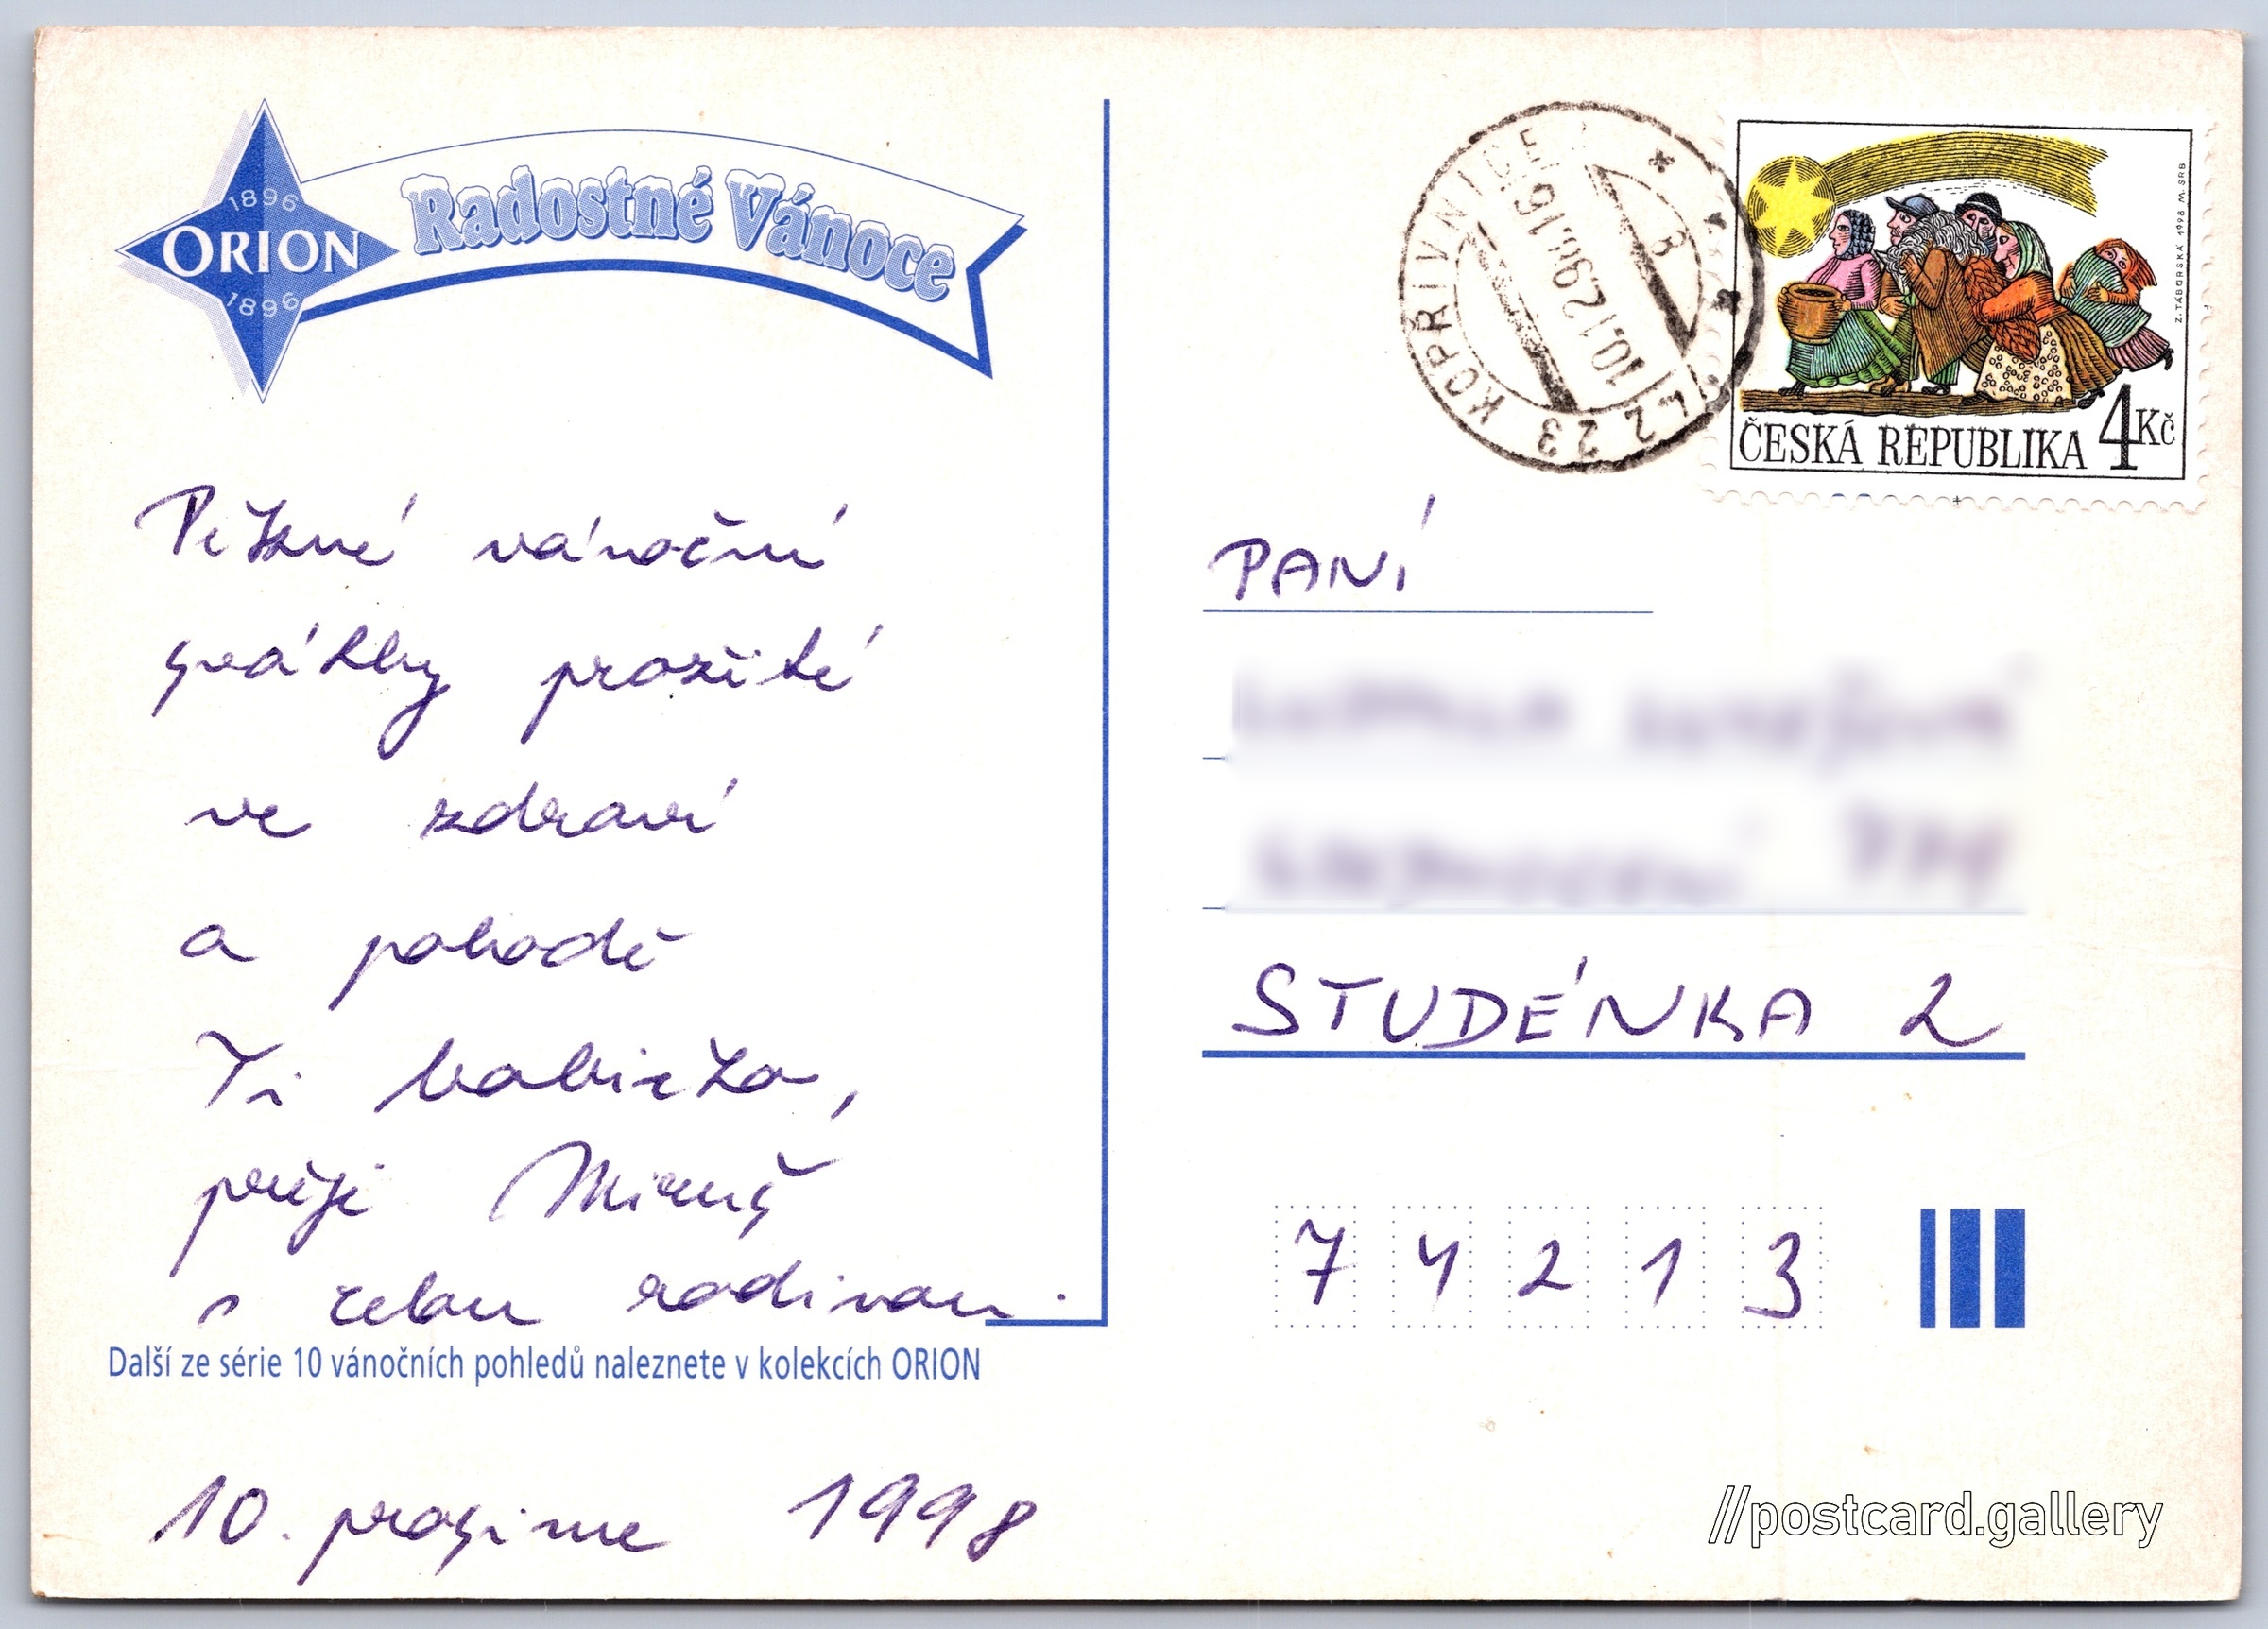 1896
ORION
1896
Radostné Vánoce
Pěkné vánoční
svátky prožité
ve zdraví
a pohodě
Ti babičko,
přeje Mireuš
s celou rodinou.
Další ze série 10 vánočních pohledů naleznete v kolekcích ORION
10. prosince 1998
742 23 KOPŘIVNICE 1
10.12.98.-16
8
Z. TÁBORSKÁ 1998 M. SRB
ČESKÁ REPUBLIKA 4Kč
PANÍ
STUDÉNKA 2
74213
//postcard.gallery